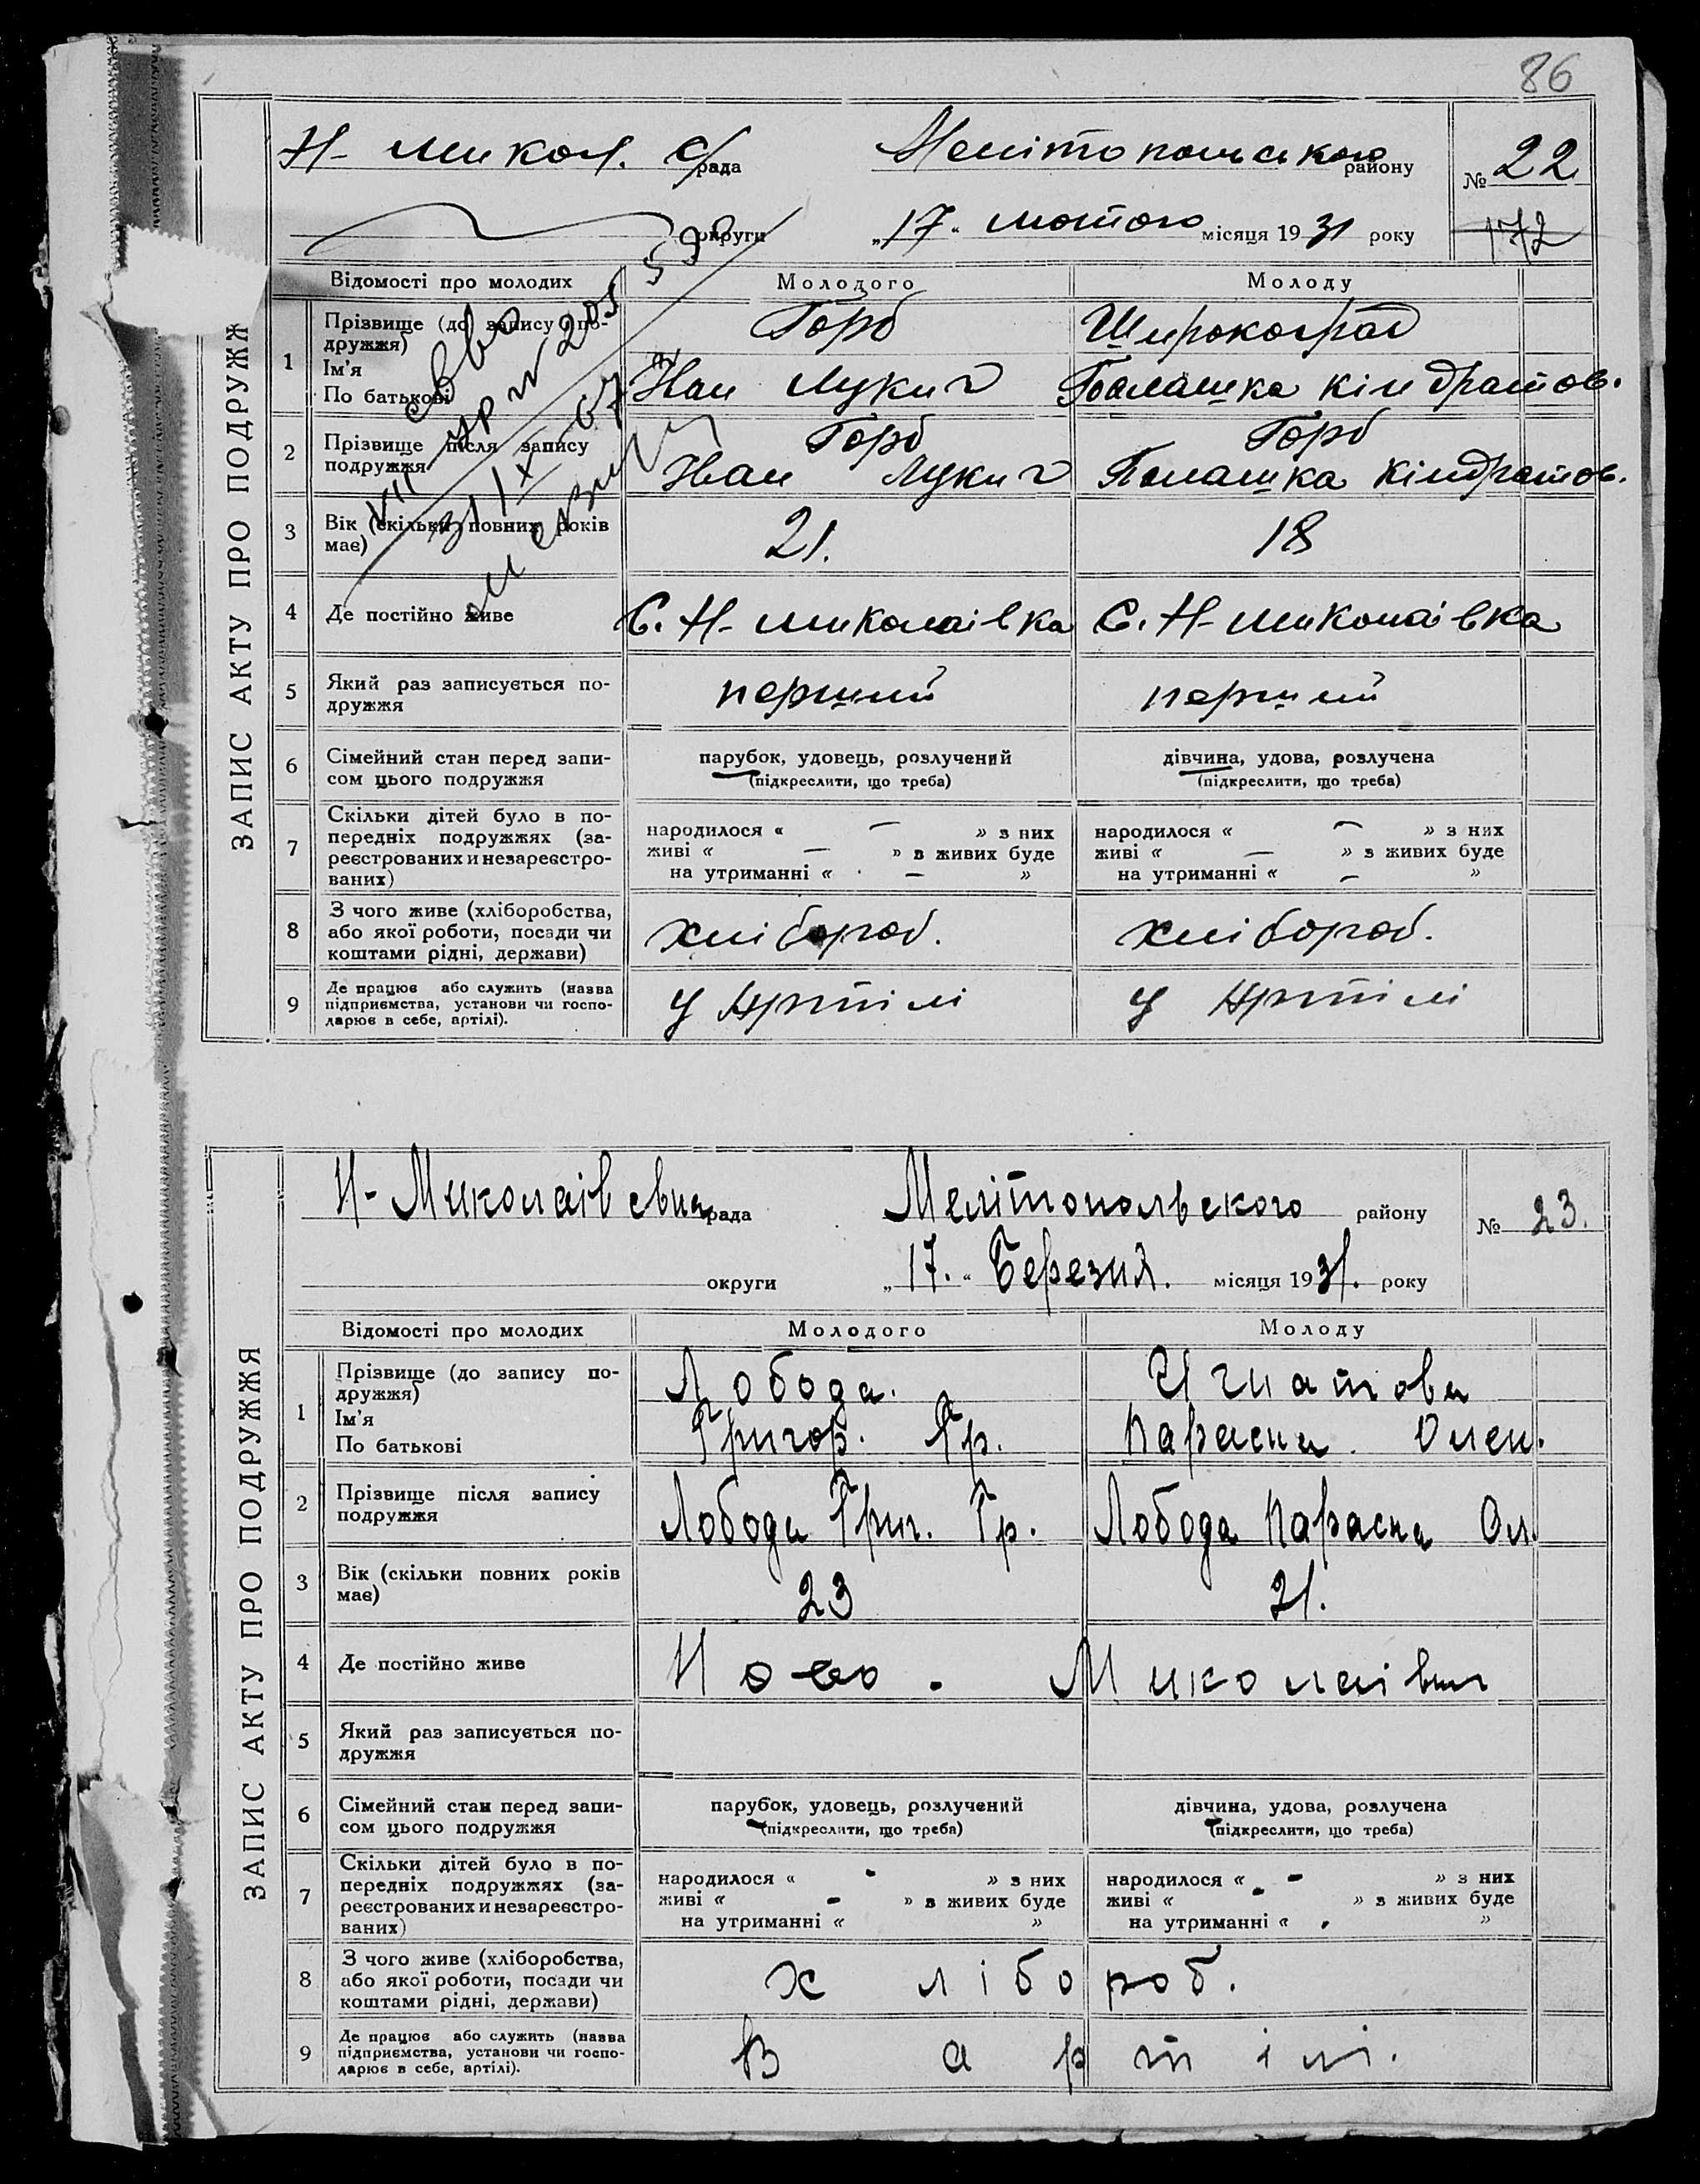 86
Н- микол. с/рада Мелітопольського району № 22
округи „17“ лютого місяця 1931 року 172
ЗАПИС АКТУ ПРО ПОДРУЖЖ
Відомості про молодих Молодого Молоду
1 Прізвище (до запису по-
дружжя) Горб Широкоград
Ім'я
По батькові Іван Лукич Палашка Кіндратов.
2 Прізвище після запису
подружжя Горб Горб
Іван Лукич Палашка Кіндратов.
3 Вік (скільки повних років
має) 21. 18
4 Де постійно живе С. Н- Миколаівка С. Н- Миколаівка
5 Який раз записується по-
дружжя перший перший
6 Сімейний стан перед запи-
сом цього подружжя
парубок, удовець, розлучений дівчина, удова, розлучена
(підкреслити, що треба) (підкреслити, що треба)
7 Скільки дітей було в по-
передніх подружжях (за-
реєстрованих и незареєстро-
ваних)
народилося « — » з них народилося « — » з них
живі « — » в живих буде живі « — » з живих буде
на утриманні « — » на утриманні « — »
8 З чого живе (хліборобства,
або якої роботи, посади чи
коштами рідні, держави) хлібороб. хлібороб.
9 Де працює або служить (назва
підприємства, установи чи госпо-
дарює в себе, артілі). у Артілі у Артілі
Н- Миколаівська рада Мелітопольського району № 23.
округи „17.“ Березня. місяця 1931. року
ЗАПИС АКТУ ПРО ПОДРУЖЖЯ
Відомості про молодих Молодого Молоду
1 Прізвище (до запису по-
дружжя) Лобода. Игнатова
Ім'я
По батькові Григор. Гр. Параска Олек.
2 Прізвище після запису
подружжя Лобода Григ. Гр. Лобода Параска Ол.
3 Вік (скільки повних років
має) 23 21.
4 Де постійно живе Ново - Миколаівка
5 Який раз записується по-
дружжя
6 Сімейний стан перед запи-
сом цього подружжя
парубок, удовець, розлучений дівчина, удова, розлучена
(підкреслити, що треба) (підкреслити, що треба)
7 Скільки дітей було в по-
передніх подружжях (за-
реєстрованих и незареєстро-
ваних)
народилося « - » з них народилося « - » з них
живі « - » в живих буде живі « - » з живих буде
на утриманні « » на утриманні « - »
8 З чого живе (хліборобства,
або якої роботи, посади чи
коштами рідні, держави) хлібороб.
9 Де працює або служить (назва
підприємства, установи чи госпо-
дарює в себе, артілі). В артілі.